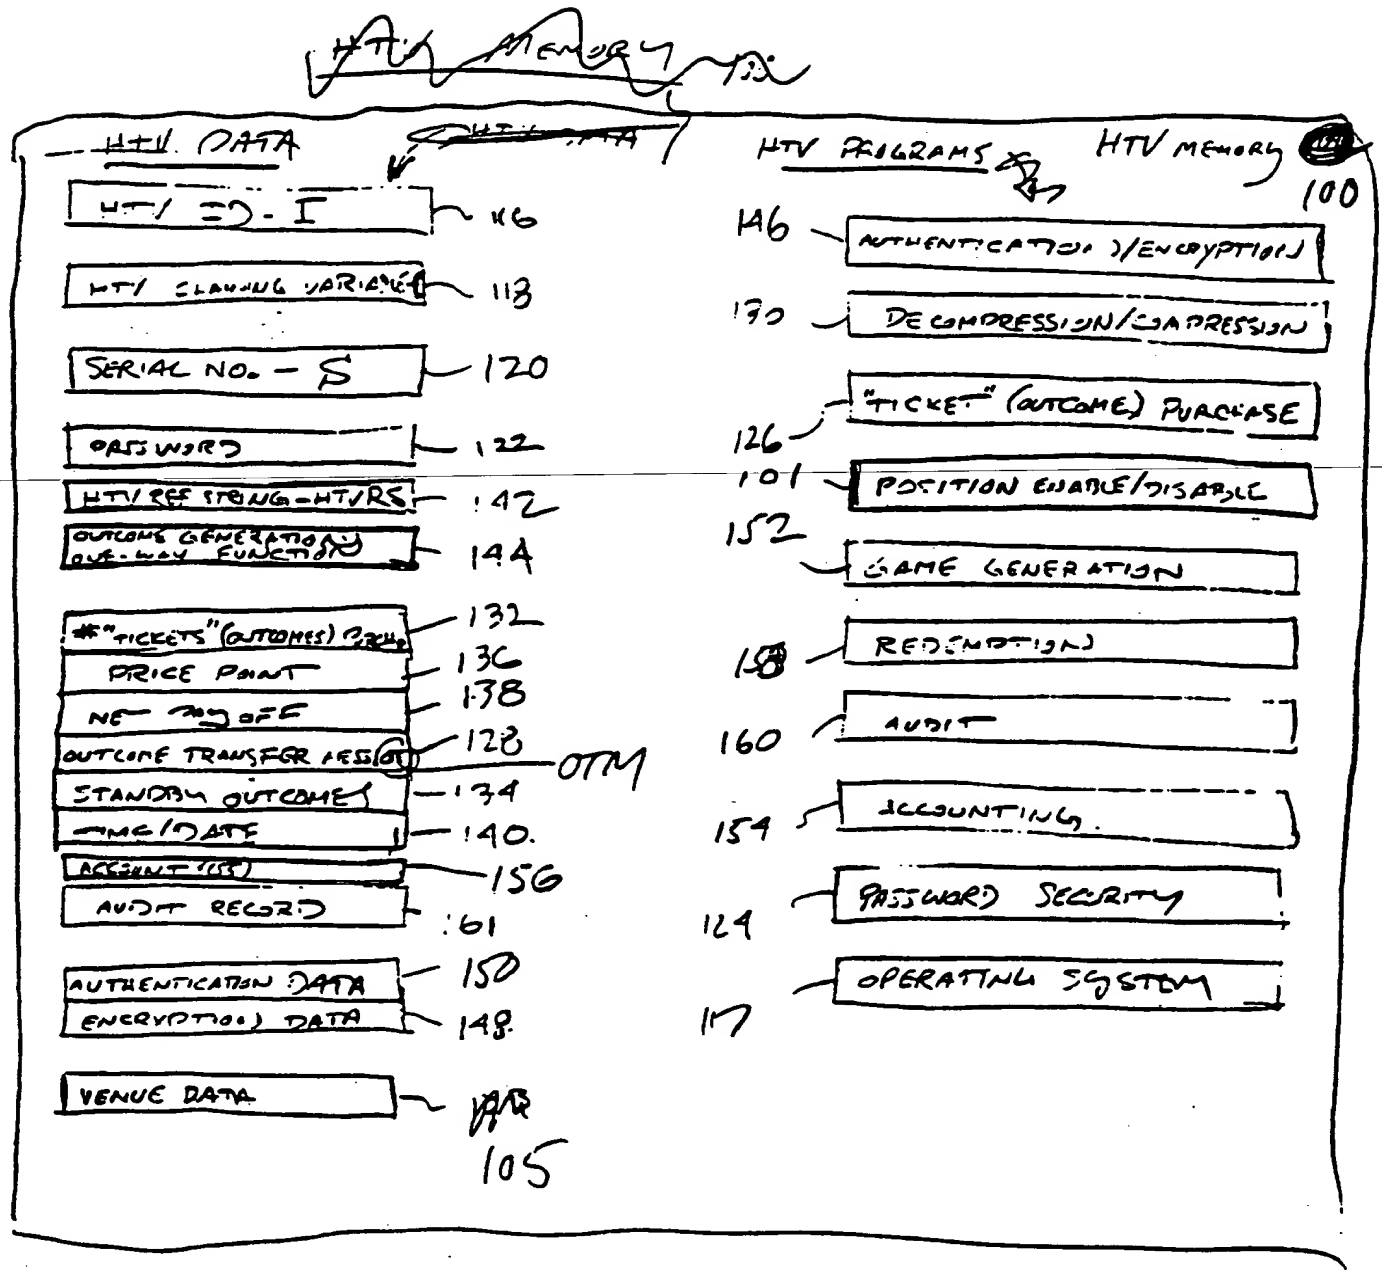 HTV MEMORY
HTV DATA
HTV DATA
HTV PROGRAMS
HTV MEMORY
100
HTV ID - I
116
HTV GAMING VARIABLES
118
SERIAL NO. - S
120
PASSWORD
122
HTV REF STRING - HTVRS
142
OUTCOME GENERATION
ONE-WAY FUNCTION
144
#"TICKETS" (OUTCOMES) PURCH.
132
PRICE POINT
136
NET PAYOFF
138
OUTCOME TRANSFER MESS
128
OTM
STANDBY OUTCOMES
134
TIME/DATE
140
ACCOUNT
156
AUDIT RECORD
161
AUTHENTICATION DATA
150
ENCRYPTION DATA
148
VENUE DATA
105
146
AUTHENTICATION/ENCRYPTION
130
DECOMPRESSION/COMPRESSION
126
"TICKET" (OUTCOME) PURCHASE
101
POSITION ENABLE/DISABLE
152
GAME GENERATION
158
REDEMPTION
160
AUDIT
154
ACCOUNTING
124
PASSWORD SECURITY
117
OPERATING SYSTEM